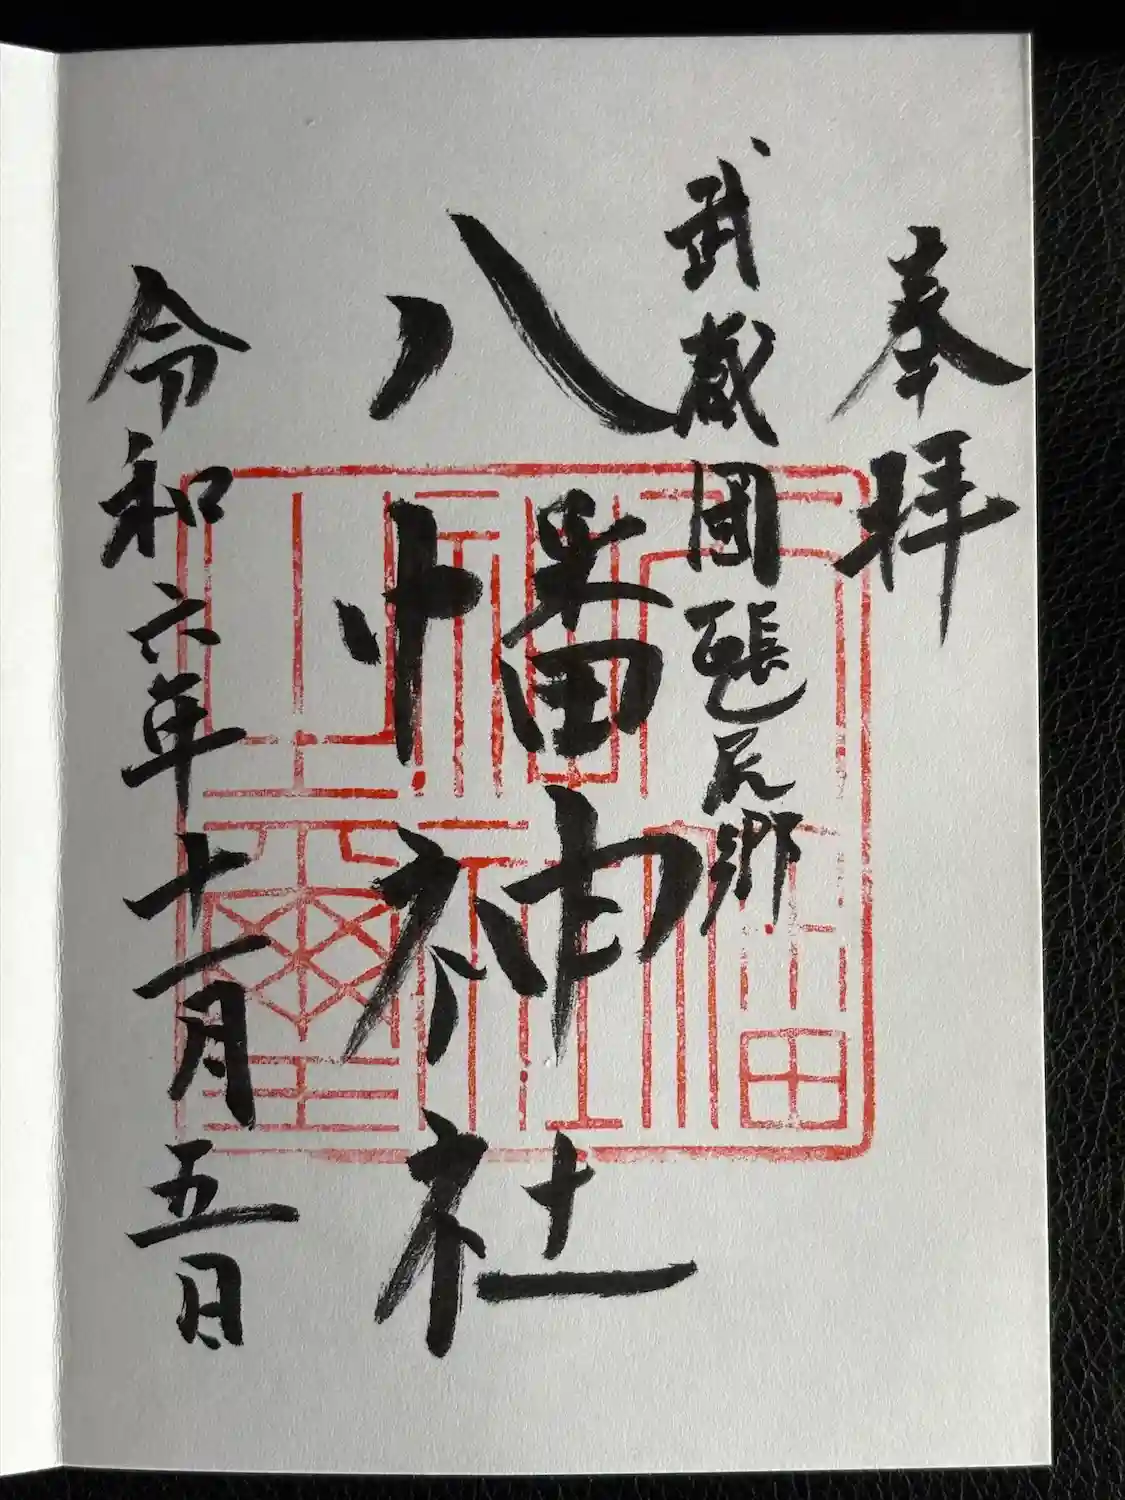 奉拝
武蔵國瓺尻郷
八幡神社
令和六年十一月五日